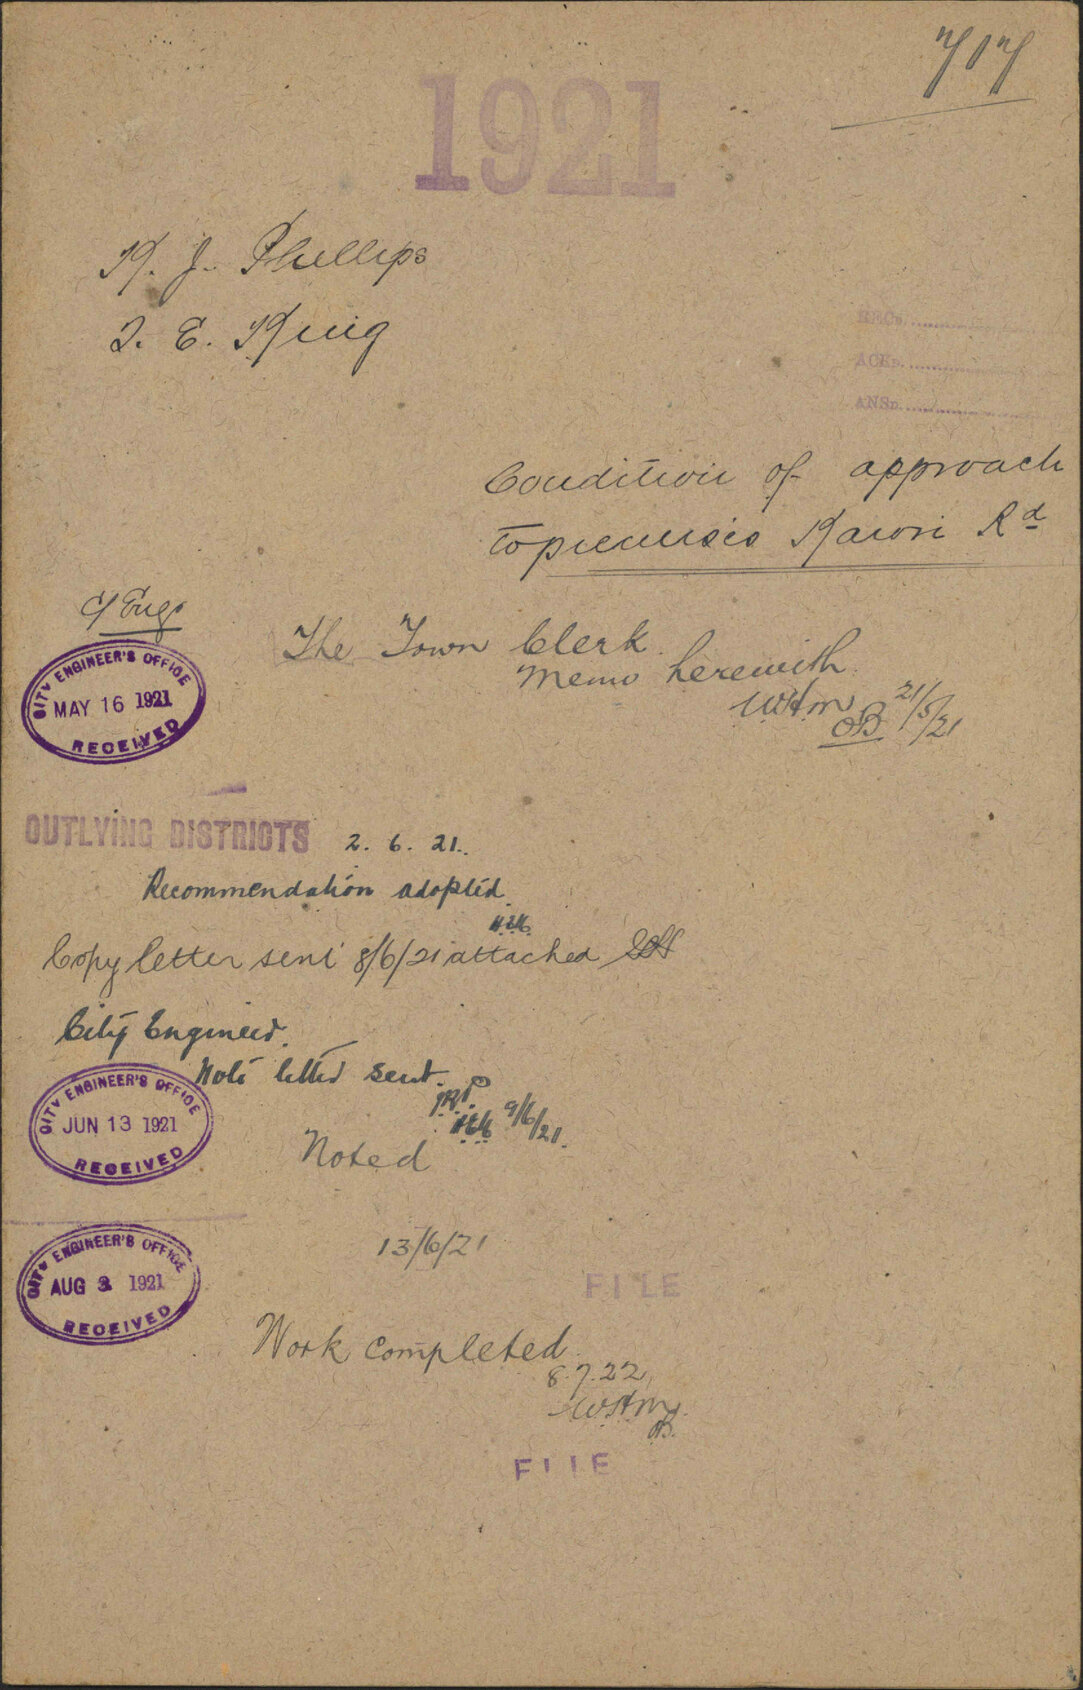 717
1921
K. J. Phillips
T. E. King
RECD.
ACKD.
ANSD.
Condition of approach
to premises Karori Rd
C/Engr
CITY ENGINEER'S OFFICE
MAY 16 1921
RECEIVED
The Town Clerk.
Memo herewith
WHM 21/5/21
OB
OUTLYING DISTRICTS 2.6.21.
Recommendation adopted.
Copy letter sent 8/6/21 attached
City Engineer.
Note letter sent.
CITY ENGINEER'S OFFICE
JUN 13 1921
RECEIVED
9/6/21.
Noted
13/6/21
CITY ENGINEER'S OFFICE
AUG 3 1921
RECEIVED
FILE
Work completed
8.7.22
WHM
OB.
FILE